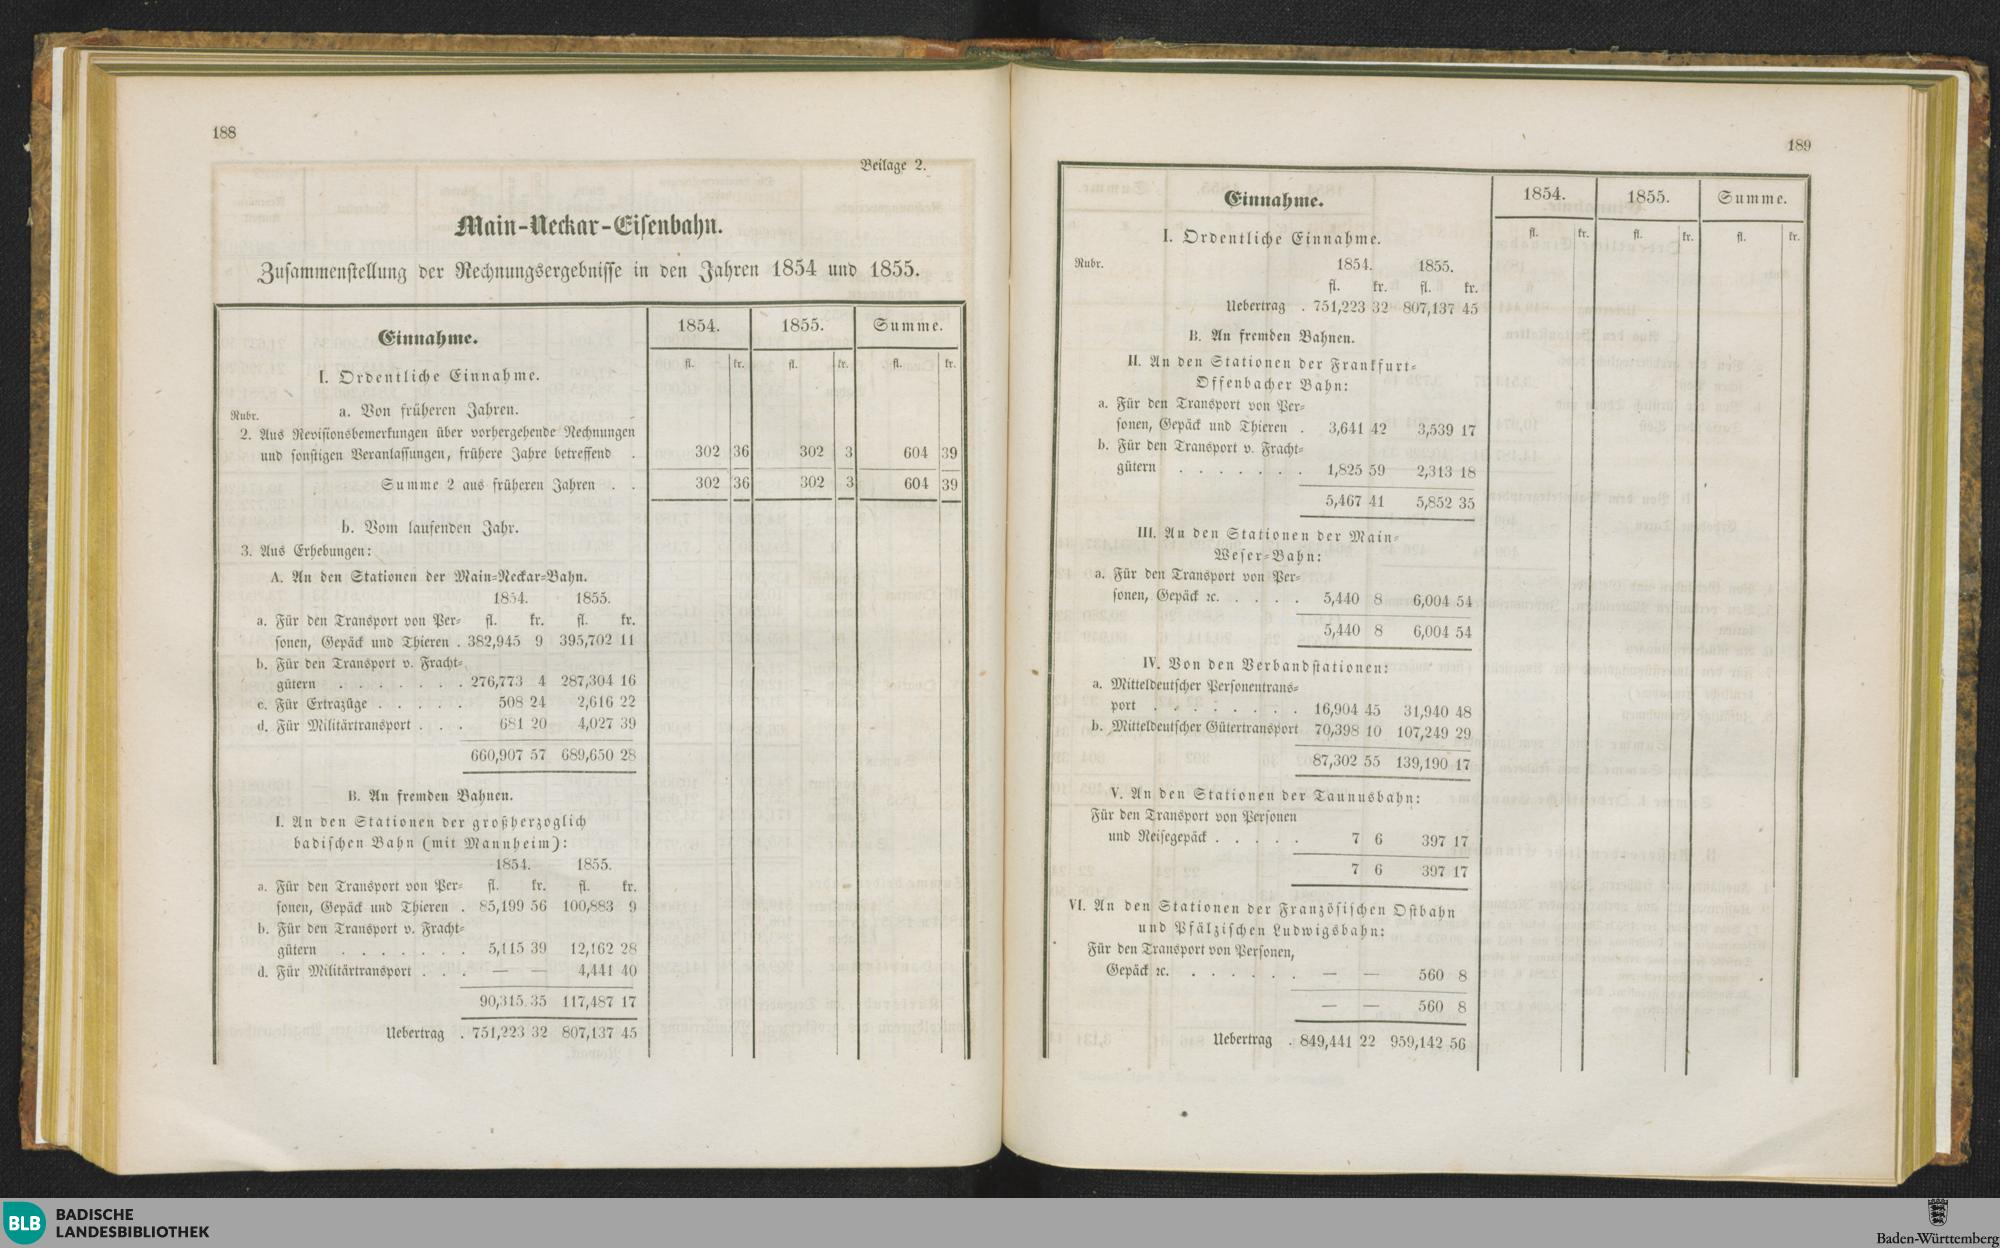 188
Beilage 2.
Main-Neckar-Eisenbahn.
Zusammenstellung der Rechnungsergebnisse in den Jahren 1854 und 1855.
Einnahme. 1854. 1855. Summe.
fl. kr. fl. kr. fl. kr.
I. Ordentliche Einnahme.
a. Von früheren Jahren.
Rubr.
2. Aus Revisionsbemerkungen über vorhergehende Rechnungen
und sonstigen Veranlassungen, frühere Jahre betreffend . 302 36 302 3 604 39
Summe 2 aus früheren Jahren . . 302 36 302 3 604 39
b. Vom laufenden Jahr.
3. Aus Erhebungen:
A. An den Stationen der Main-Neckar-Bahn.
1854. 1855.
a. Für den Transport von Per- fl. kr. fl. kr.
sonen, Gepäck und Thieren . 382,945 9 395,702 11
b. Für den Transport v. Fracht-
gütern . . . . . . . 276,773 4 287,304 16
c. Für Extrazüge . . . . . 508 24 2,616 22
d. Für Militärtransport . . . 681 20 4,027 39
660,907 57 689,650 28
B. An fremden Bahnen.
I. An den Stationen der großherzoglich
badischen Bahn (mit Mannheim):
1854. 1855.
a. Für den Transport von Per- fl. kr. fl. kr.
sonen, Gepäck und Thieren . 85,199 56 100,883 9
b. Für den Transport v. Fracht-
gütern . . . . . . . 5,115 39 12,162 28
d. Für Militärtransport . . . — — 4,441 40
90,315 35 117,487 17
Uebertrag . 751,223 32 807,137 45
189
Einnahme. 1854. 1855. Summe.
fl. kr. fl. kr. fl. kr.
I. Ordentliche Einnahme.
Rubr. 1854. 1855.
fl. kr. fl. kr.
Uebertrag . 751,223 32 807,137 45
B. An fremden Bahnen.
II. An den Stationen der Frankfurt-
Offenbacher Bahn:
a. Für den Transport von Per-
sonen, Gepäck und Thieren . 3,641 42 3,539 17
b. Für den Transport v. Fracht-
gütern . . . . . . . 1,825 59 2,313 18
5,467 41 5,852 35
III. An den Stationen der Main-
Weser-Bahn:
a. Für den Transport von Per-
sonen, Gepäck ꝛc. . . . . 5,440 8 6,004 54
5,440 8 6,004 54
IV. Von den Verbandstationen:
a. Mitteldeutscher Personentrans-
port . . . . . . . . 16,904 45 31,940 48
b. Mitteldeutscher Gütertransport 70,398 10 107,249 29
87,302 55 139,190 17
V. An den Stationen der Taunusbahn:
Für den Transport von Personen
und Reisegepäck . . . . . 7 6 397 17
7 6 397 17
VI. An den Stationen der Französischen Ostbahn
und Pfälzischen Ludwigsbahn:
Für den Transport von Personen,
Gepäck ꝛc. . . . . . . — — 560 8
— — 560 8
Uebertrag . 849,441 22 959,142 56
BLB BADISCHE
LANDESBIBLIOTHEK
Baden-Württemberg